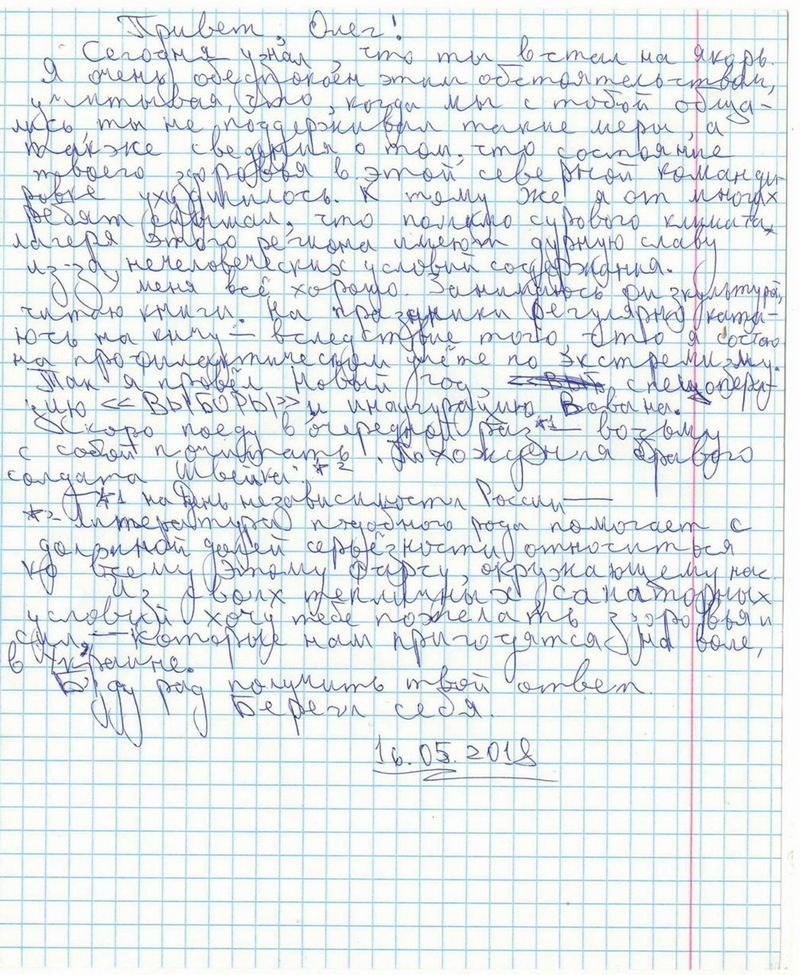 Привет, Олег!
Сегодня узнал, что ты встал на якорь.
Я очень обеспокоен этим обстоятельством,
учитывая, что, когда мы с тобой обща-
лись, ты не поддерживал такие меры, а
также сведения о том, что состояние
твоего здоровья в этой северной команди-
ровке ухудшилось. К тому же я от многих
ребят слышал, что помимо сурового климата,
лагеря этого региона имеют дурную славу
из-за нечеловеческих условий содержания.
У меня всё хорошо. Занимаюсь физкультурой,
читаю книги. На праздники регулярно ката-
юсь на кичу — вследствие того, что я состою
на профилактическом учёте по экстремизму.
Так я провёл Новый год, спецопера-
цию «ВЫБОРЫ» и инаугурацию Вована.
Скоро поеду в очередной раз*1 — возьму
с собой почитать Похождения бравого
солдата Швейка. *2
— *1 на День независимости России —
*2 Литература подобного рода помогает с
должной долей серьёзности относиться
ко всему этому фарсу, окружающему нас.
Из своих тепличных санаторных
условий хочу тебе пожелать здоровья и
сил — которые нам пригодятся на воле,
в Украине.
Буду рад получить твой ответ.
Береги себя.
16.05.2018